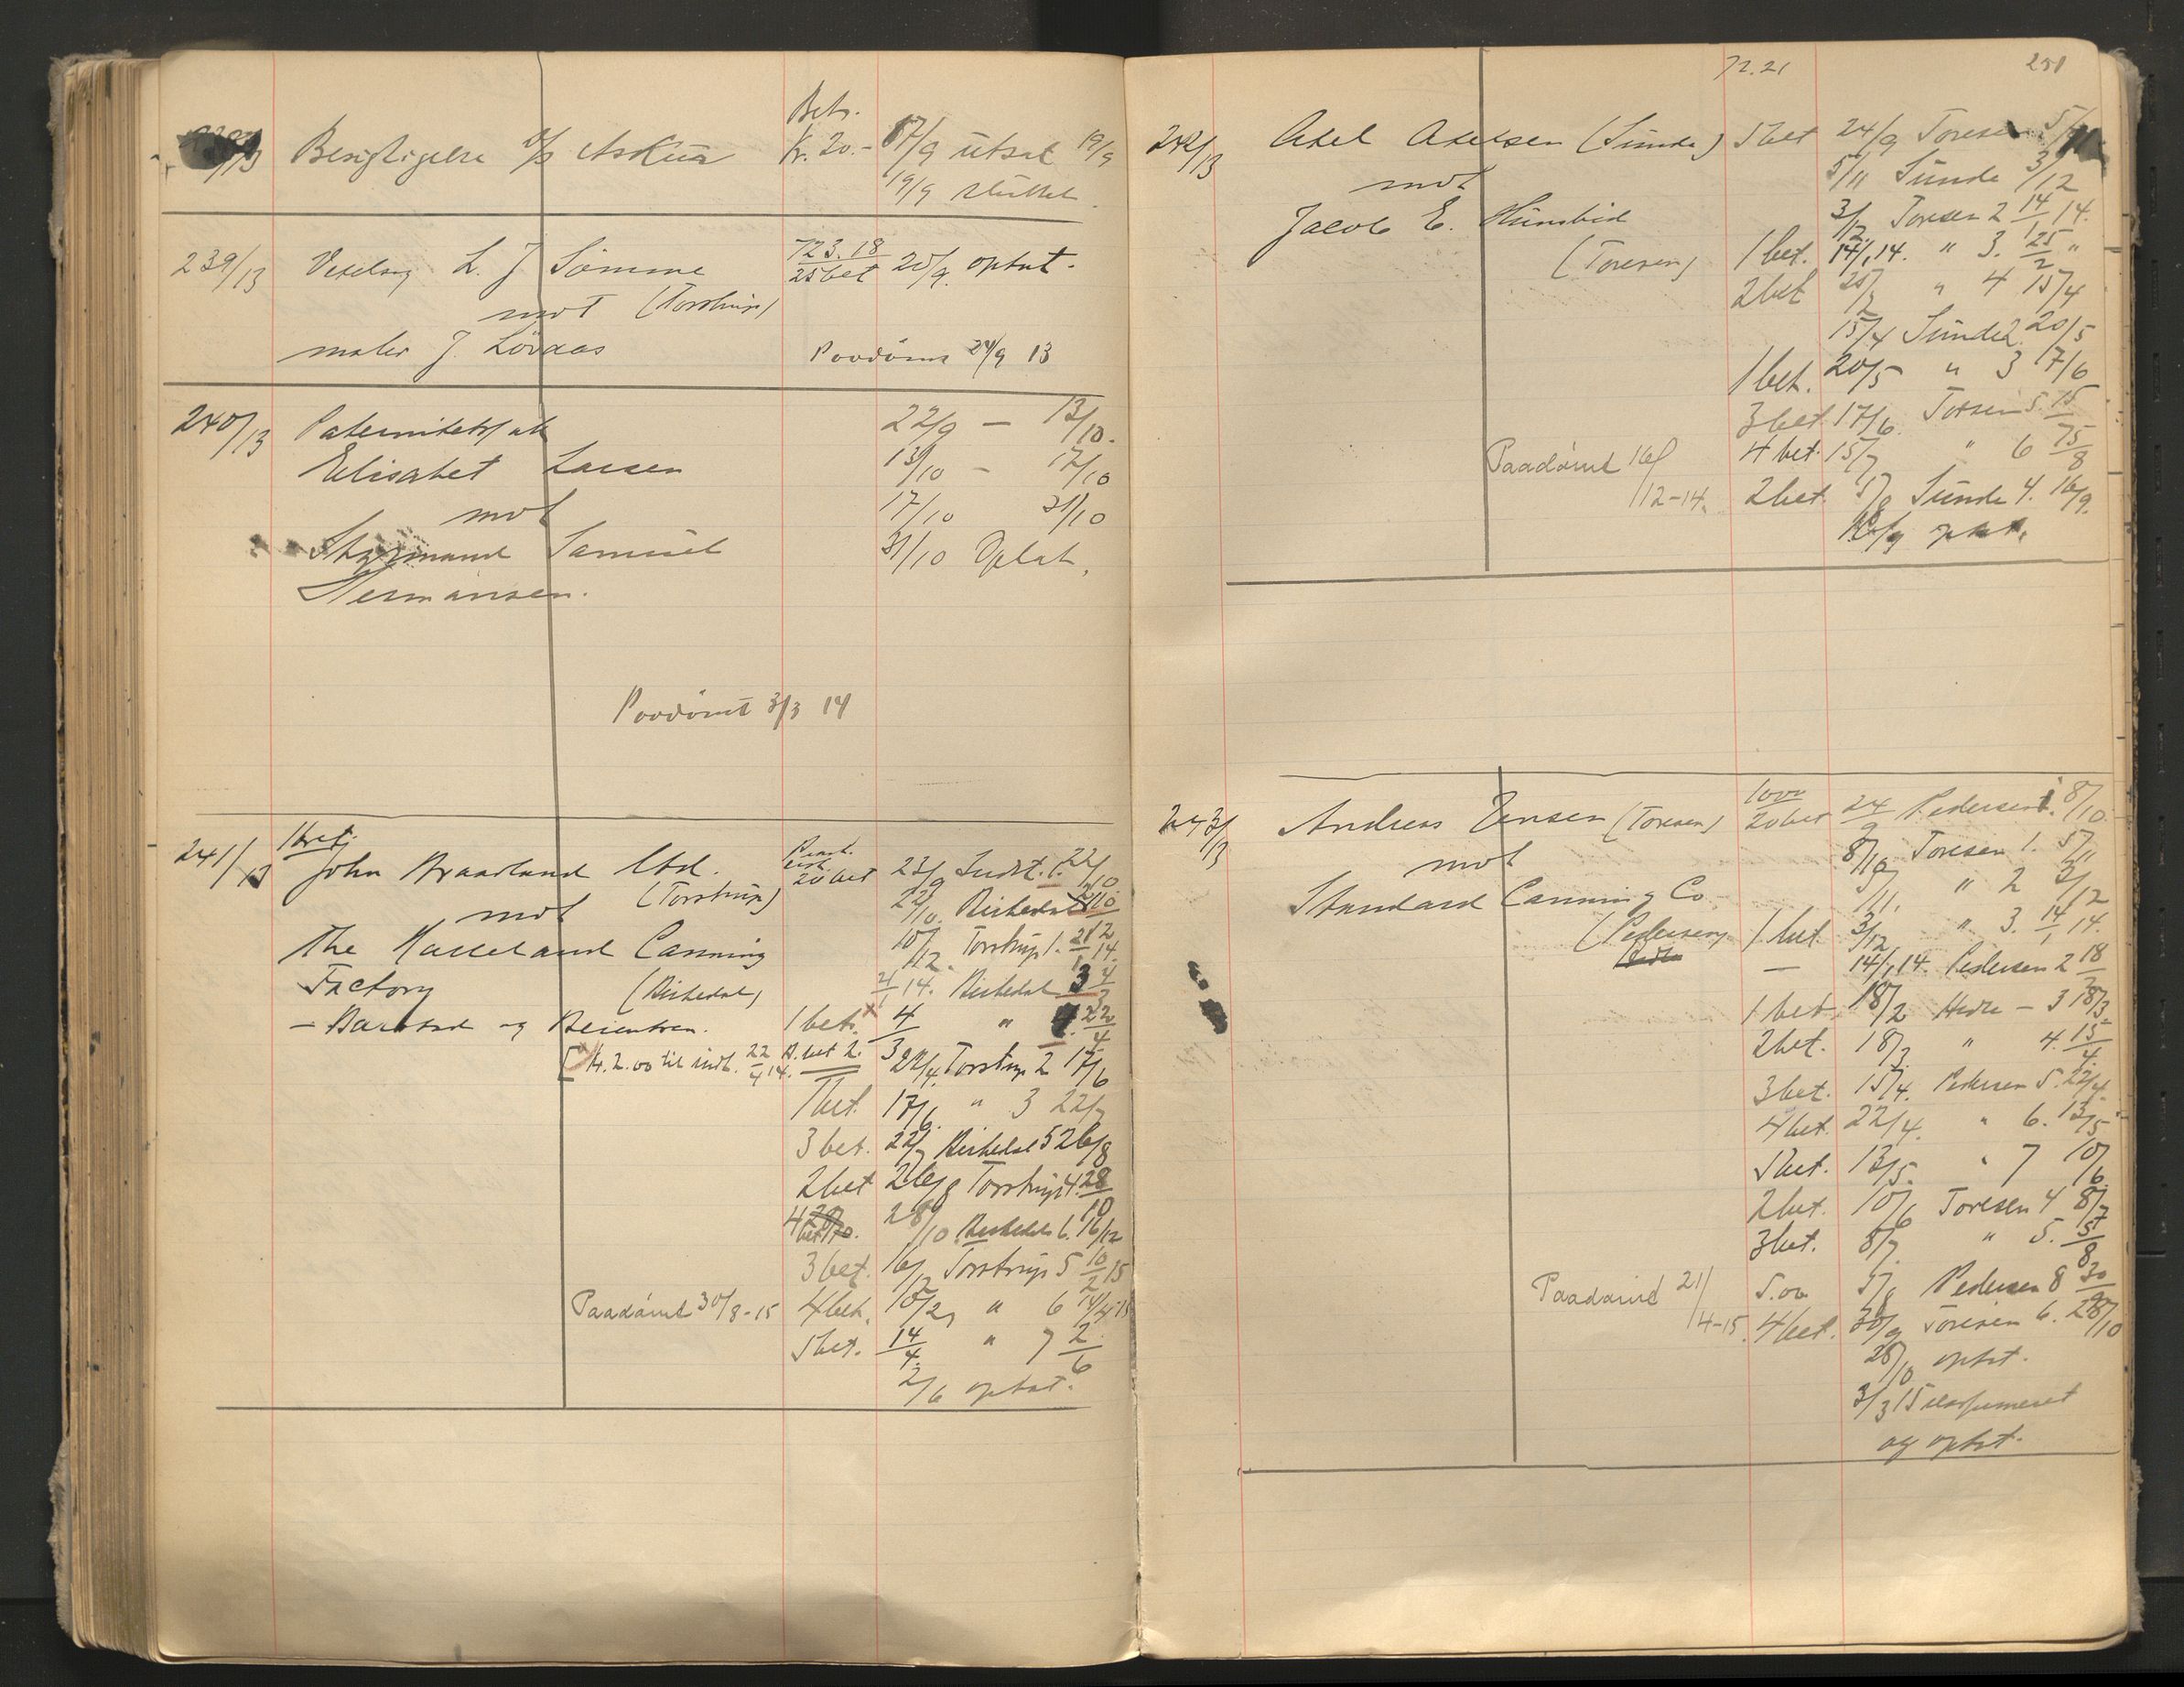 Bet.
/13 Besigtigelse D/S Askur Kr. 20.- 17/9 utsat 19/9
19/9 sluttet.
239/13 Vekselsag L. J. Sømme 723.18 20/9 optat.
25 bet
mot (Torstrup)
maler J. Lövaas Paadömt 24/9 13
240/13 Paternitetssak 22/9 - 13/10.
Elisabet Larsen 13/10 - 17/10
mot 17/10 31/10
Styrmand Samuel 31/10 Optat.
Hermansen.
Paadömt 3/3 14
241/13 John Braadland Ltd. 20 bet 23/9 Indst. 1. 22/10
(Torstrup)
mot 22/10. Birkedal
The Hasseland Canning 10/12. Torstrup 1. 21/1 14.
Factory (Birkedal) 21/1 14. Birkedal 3 4/3
1 bet. 4/3 " 22/4
[Kr. 2.00 til indb. 22/4 14. bet 2. 22/4. Torstrup 2 17/6
1 bet. 17/6. " 3 22/7
3 bet. 22/7 Birkedal 5 26/8
2 bet 26/8 Torstrup 4. 28/10
4 28/10 Birkedal 6. 16/12
3 bet. 16/12 Torstrup 5 10/2 15
Paadömt 30/8-15 4 bet. 10/2, " 6 14/4 15
5 bet. 14/4. " 7 2/6
2/6 optat.
72.21 251
242/13 Axel Axelsen (Sunde) 5 bet 24/9 Toresen 5/11
mot 5/11 Sunde 3/12
Jacob E. 3/12 Toresen 2 14/1 14.
(Toresen) 1 bet. 14/1 14. " 3. 25/2 "
2 bet 25/2 " 4 15/4
15/4 Sunde 2. 20/5
1 bet. 20/5 " 3 17/6
3 bet. 17/6. Toresen 5. 15
Paadömt 16/12-14. 4 bet. 15/7 " 6 25/8
2 bet. Sunde 4. 16/9.
16/9 optat.
243/13 Andreas Jensen (Toresen) 1000 24/9 Pedersen 1. 8/10
20 bet
mot 8/10 Toresen 1. 5/11
Standard Canning Co. 5/11. " 2 3/12
(Pedersen) 1 bet. 3/12 " 3. 14/1 14.
— 14/1 14. Pedersen 2 18/2
1 bet. 18/2 Hedre - 3 18/3
2 bet. 18/3 " 4. 15/4.
3 bet. 15/4. Pedersen 5. 22/4.
4 bet. 22/4. " 6. 13/5
5 bet. 13/5. " 7 10/6
2 bet. 10/6 Toresen 4 8/7
3 bet. 8/7. " 5. 5/8
Paadömt 21/4-15. 5.00 5/8 Pedersen 8 30/9
4 bet. 30/9 Toresen 6. 28/10
28/10 optat.
3/3 15 reassumeret
og optat.